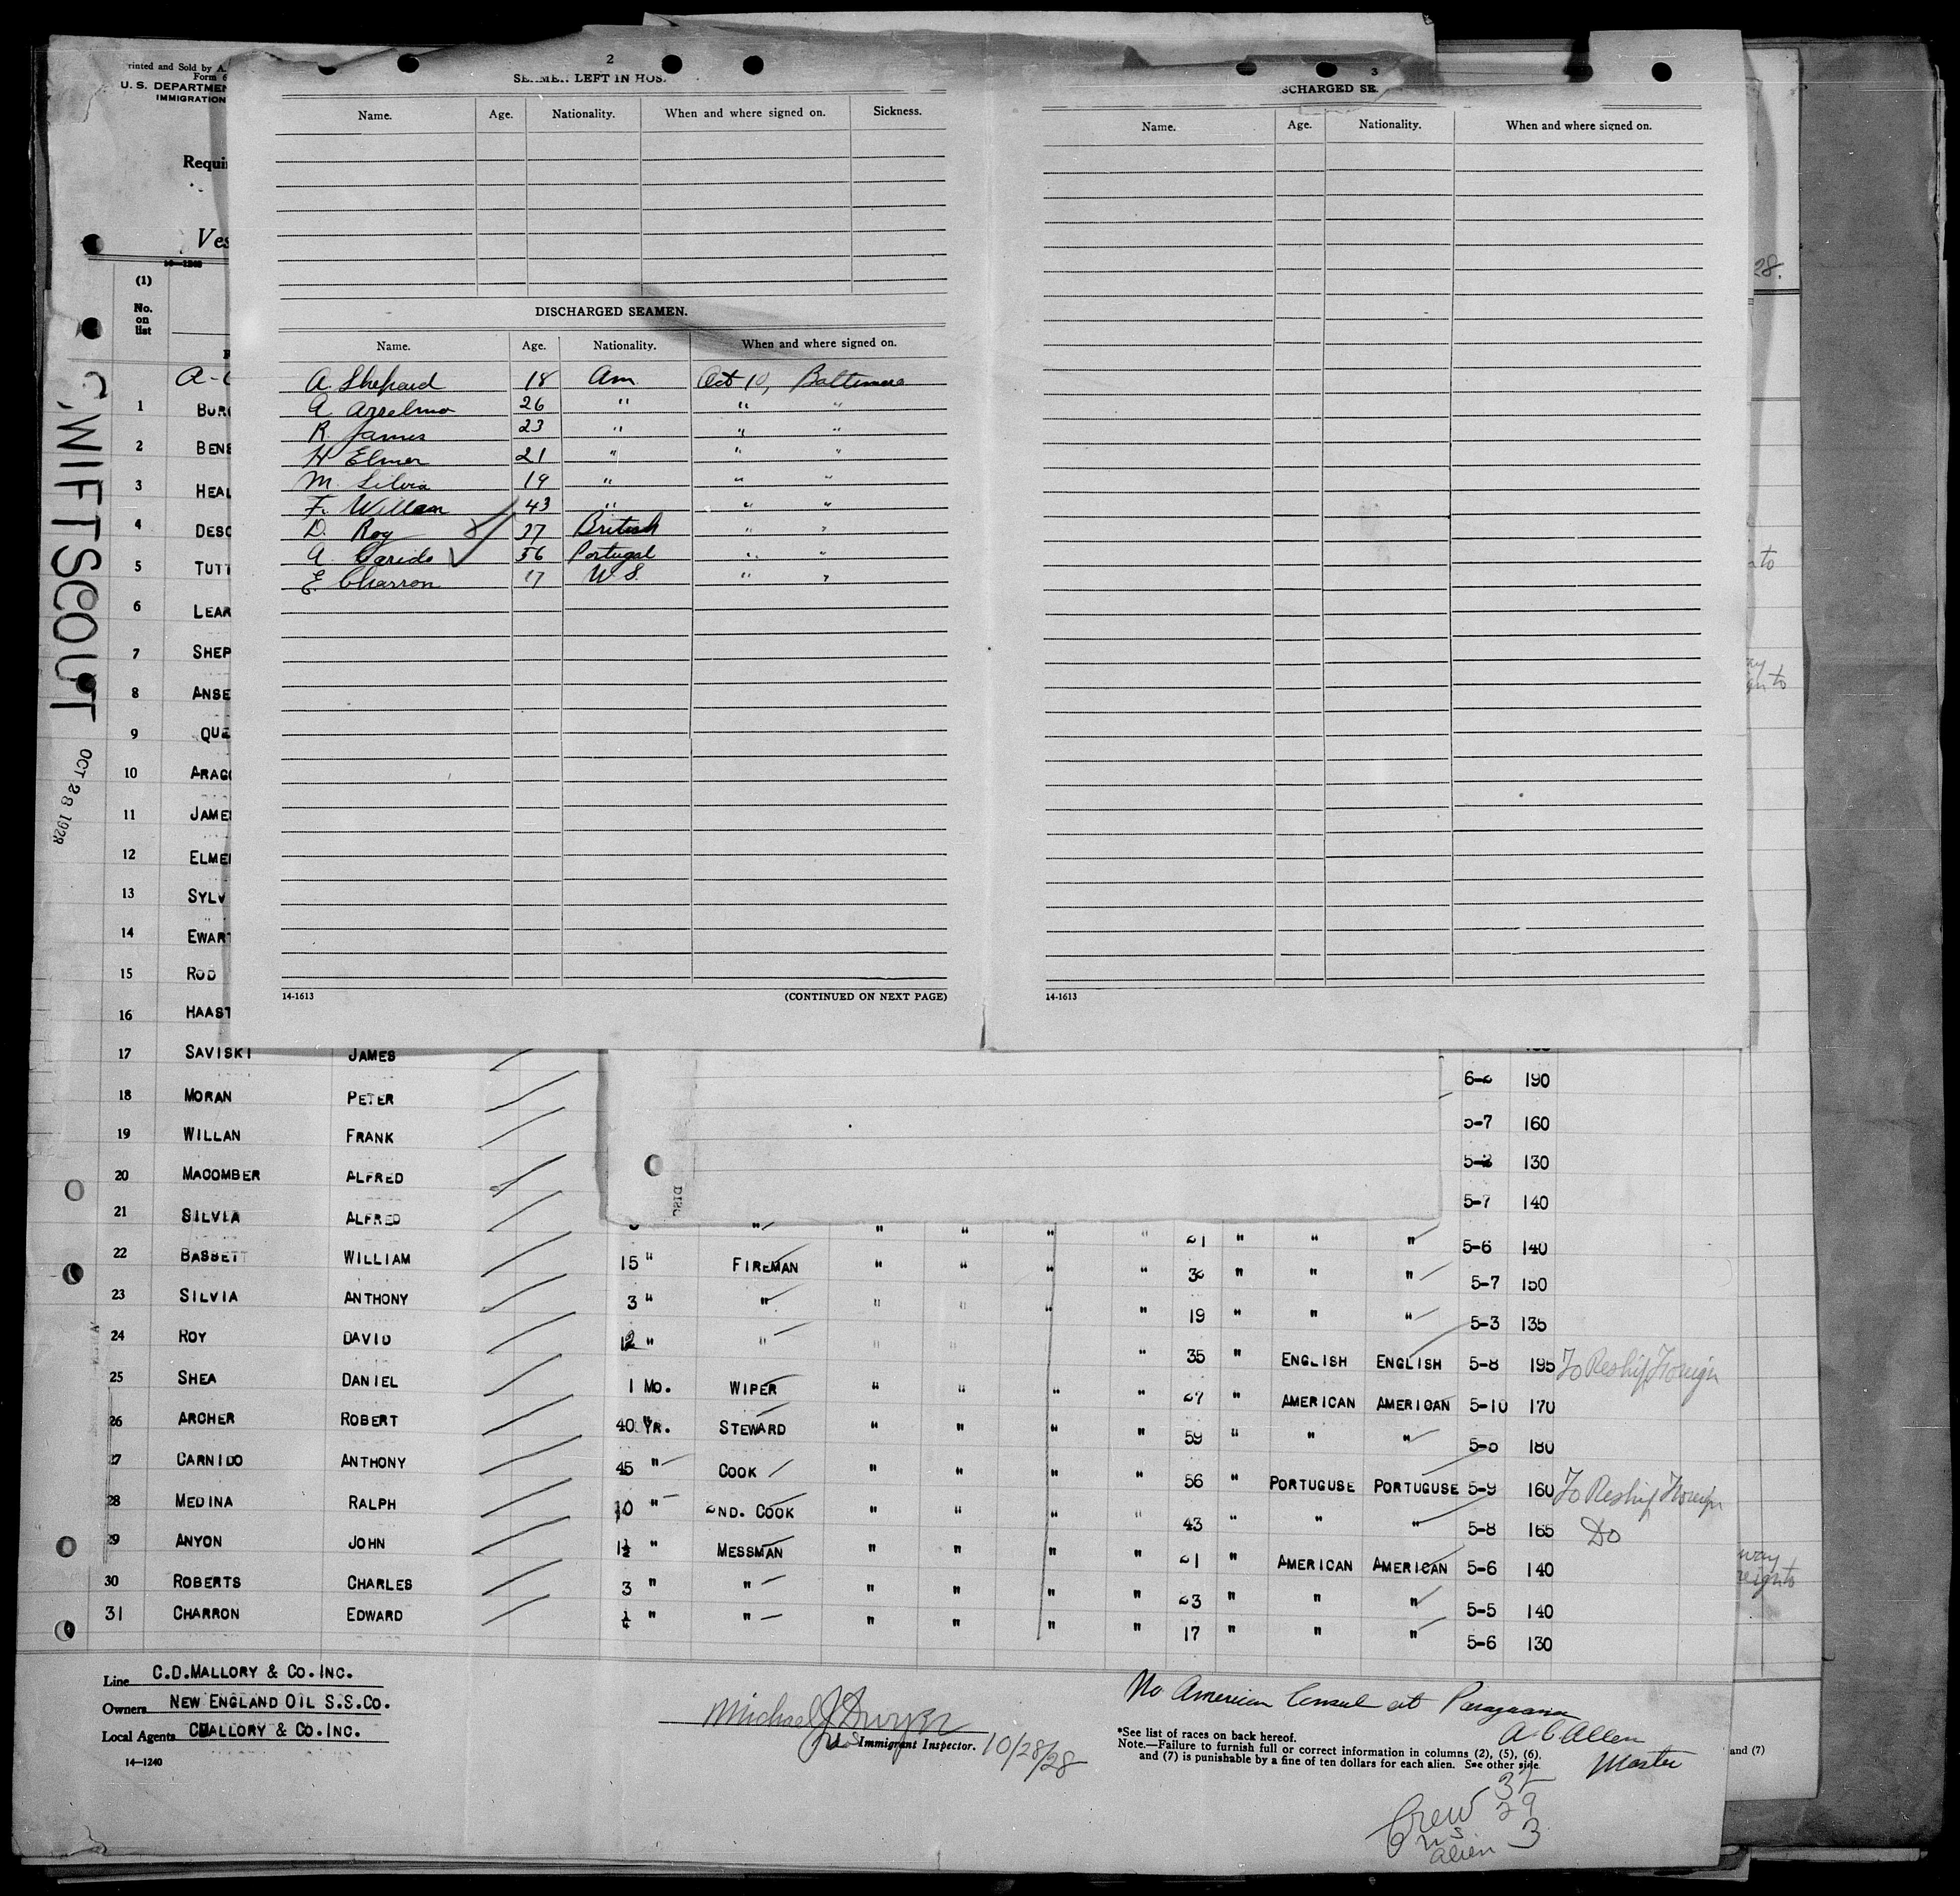 2
SEAMEN LEFT IN HOS
Name. Age. Nationality. When and where signed on. Sickness.
DISCHARGED SEAMEN.
Name. Age. Nationality. When and where signed on.
A. Shepard 18 Am. Oct 10, Baltimore
A. Anselmo 26 " " "
R. James 23 " " "
H Elmer 21 " " "
M. Silvia 19 " " "
F. Willan 43 " " "
D. Roy 37 British " "
A Carido 56 Portugal " "
E. Charron 17 U.S. " "
14-1613 (CONTINUED ON NEXT PAGE)
3
SCHARGED SE
Name. Age. Nationality. When and where signed on.
14-1613
rinted and Sold by A.
Form 6
U. S. DEPARTMEN
IMMIGRATION
Requi
Ves
14-1240
(1)
No. on list
SWIFTSCOUT
OCT 28 1928
1 BURG
2 BENE
3 HEAL
4 DESC
5 TUTT
6 LEAR
7 SHEP
8 ANSE
9 QUE
10 ARAGO
11 JAME
12 ELME
13 SYLV
14 EWART
15 ROD
16 HAAST
17 SAVISKI JAMES
18 MORAN PETER 6-2 190
19 WILLAN FRANK 5-7 160
20 MACOMBER ALFRED 5-2 130
5-7 140
21 SILVIA ALFRED " " " " " 21 " " " 5-6 140
22 BASSETT WILLIAM 15 " FIREMAN " " " " 32 " " " 5-7 150
23 SILVIA ANTHONY 3 " " " " " " 19 " " " 5-3 135
24 ROY DAVID 12 " " " " " 35 " ENGLISH ENGLISH 5-8 195 To Reship Foreign
25 SHEA DANIEL 1 MO. WIPER " " " " 27 " AMERICAN AMERICAN 5-10 170
26 ARCHER ROBERT 40 YR. STEWARD " " " " 59 " " " 5-8 180
27 CARNIDO ANTHONY 45 " COOK " " " " 56 " PORTUGUSE PORTUGUSE 5-9 160 To Reship Foreign
28 MEDINA RALPH 10 " 2ND. COOK " " " " 43 " " " 5-8 165 Do
29 ANYON JOHN 1½ " MESSMAN " " " " 21 " AMERICAN AMERICAN 5-6 140
30 ROBERTS CHARLES 3 " " " " " " 23 " " " 5-5 140
31 CHARRON EDWARD ¼ " " " " " " 17 " " " 5-6 130
Line C.D.MALLORY & CO.INC.
Owners NEW ENGLAND OIL S.S.CO.
Local Agents CMALLORY & CO.INC.
14-1240
Michael J Dwyer
Immigrant Inspector. 10/28/28
No American Consul at Paraguana
A C Allen
Master
*See list of races on back hereof.
Note.—Failure to furnish full or correct information in columns (2), (5), (6),
and (7) is punishable by a fine of ten dollars for each alien. See other side.
Crew 32
US 29
alien 3
28.
and (7)